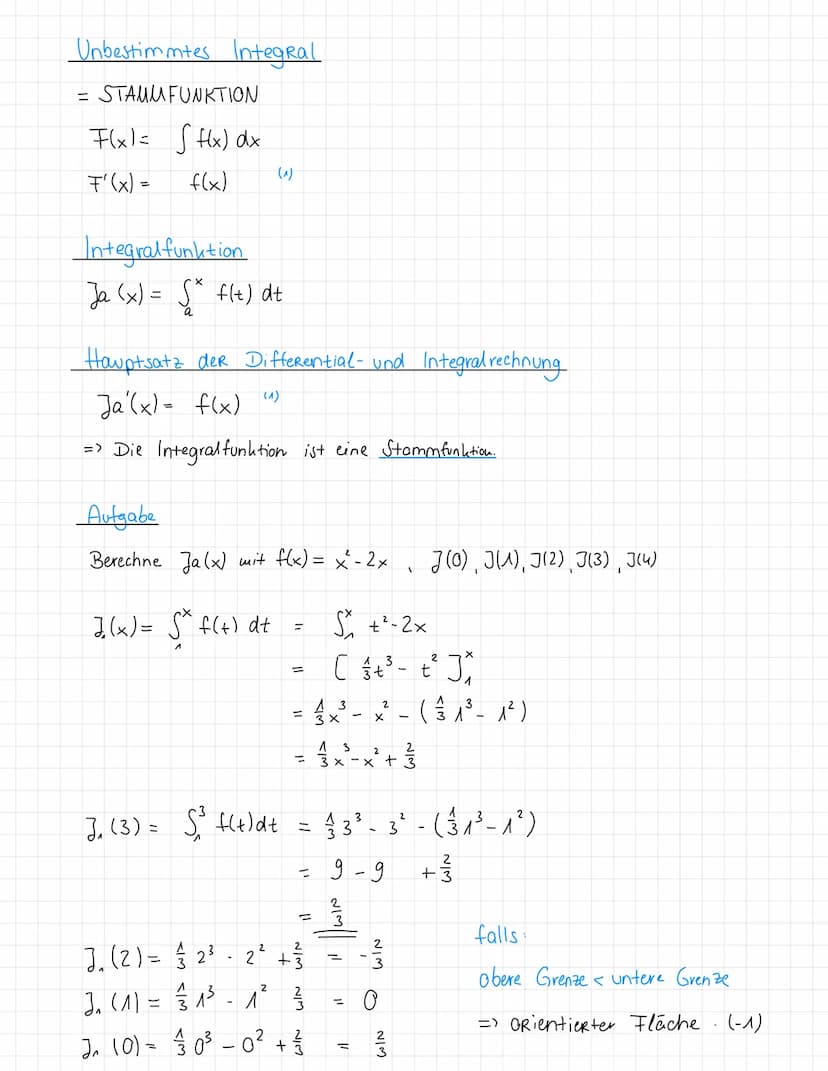 Unbestimmtes Integral
= STAMMFUNKTION
F(x) = ∫ f(x) dx
F'(x) = f(x) (1)
Integralfunktion
Ja (x) = ∫ₐˣ f(t) dt
Hauptsatz der Differential- und Integralrechnung
Ja'(x) = f(x) (1)
=> Die Integralfunktion ist eine Stammfunktion.
Aufgabe
Berechne Ja(x) mit f(x) = x² - 2x , J(0), J(1), J(2), J(3), J(4)
J₁(x) = ∫₁ˣ f(t) dt = ∫₁ˣ t² - 2x
= [ 1/3 t³ - t² ]₁ˣ
= 1/3 x³ - x² - ( 1/3 1³ - 1² )
= 1/3 x³ - x² + 2/3
J₁(3) = ∫₁³ f(t) dt = 1/3 3³ - 3² - ( 1/3 1³ - 1² )
= 9 - 9 + 2/3
= 2/3
J₁(2) = 1/3 2³ - 2² + 2/3 = - 2/3
J₁(1) = 1/3 1³ - 1² 2/3 = 0
J₁(0) = 1/3 0³ - 0² + 2/3 = 2/3
falls:
obere Grenze < untere Grenze
=> orientierter Fläche · (-1)